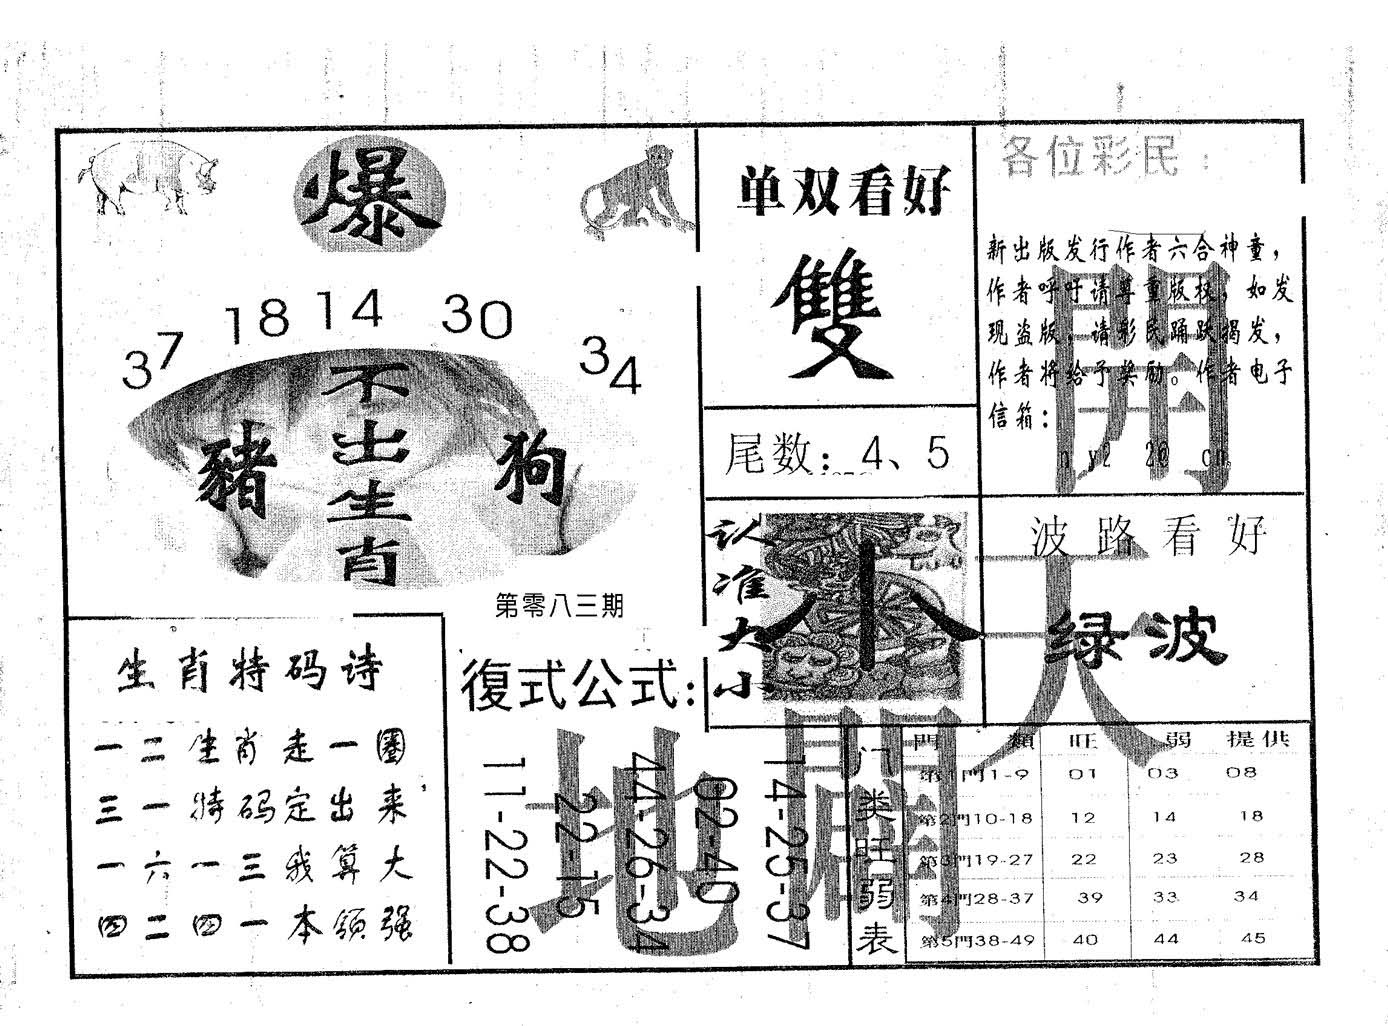 爆
37 18 14 30 34
不出生肖
豬
狗
第零八三期
单双看好
雙
尾数：4、5
各位彩民：
新出版发行作者六合神童，
作者呼吁请尊重版权，如发
现盗版，请彩民踊跃揭发，
作者将给予奖励。作者电子
信箱：
認准大小
小
波路看好
绿波
開
天
闢
地
生肖特码诗
一二生肖走一圈
三一特码定出来
一六一三我算大
四二四一本领强
復式公式：
11-22-38
22-15
44-26-34
02-40
14-25-37
门类旺弱表
門類 旺 弱 提供
第1門1-9 01 03 08
第2門10-18 12 14 18
第3門19-27 22 23 28
第4門28-37 39 33 34
第5門38-49 40 44 45